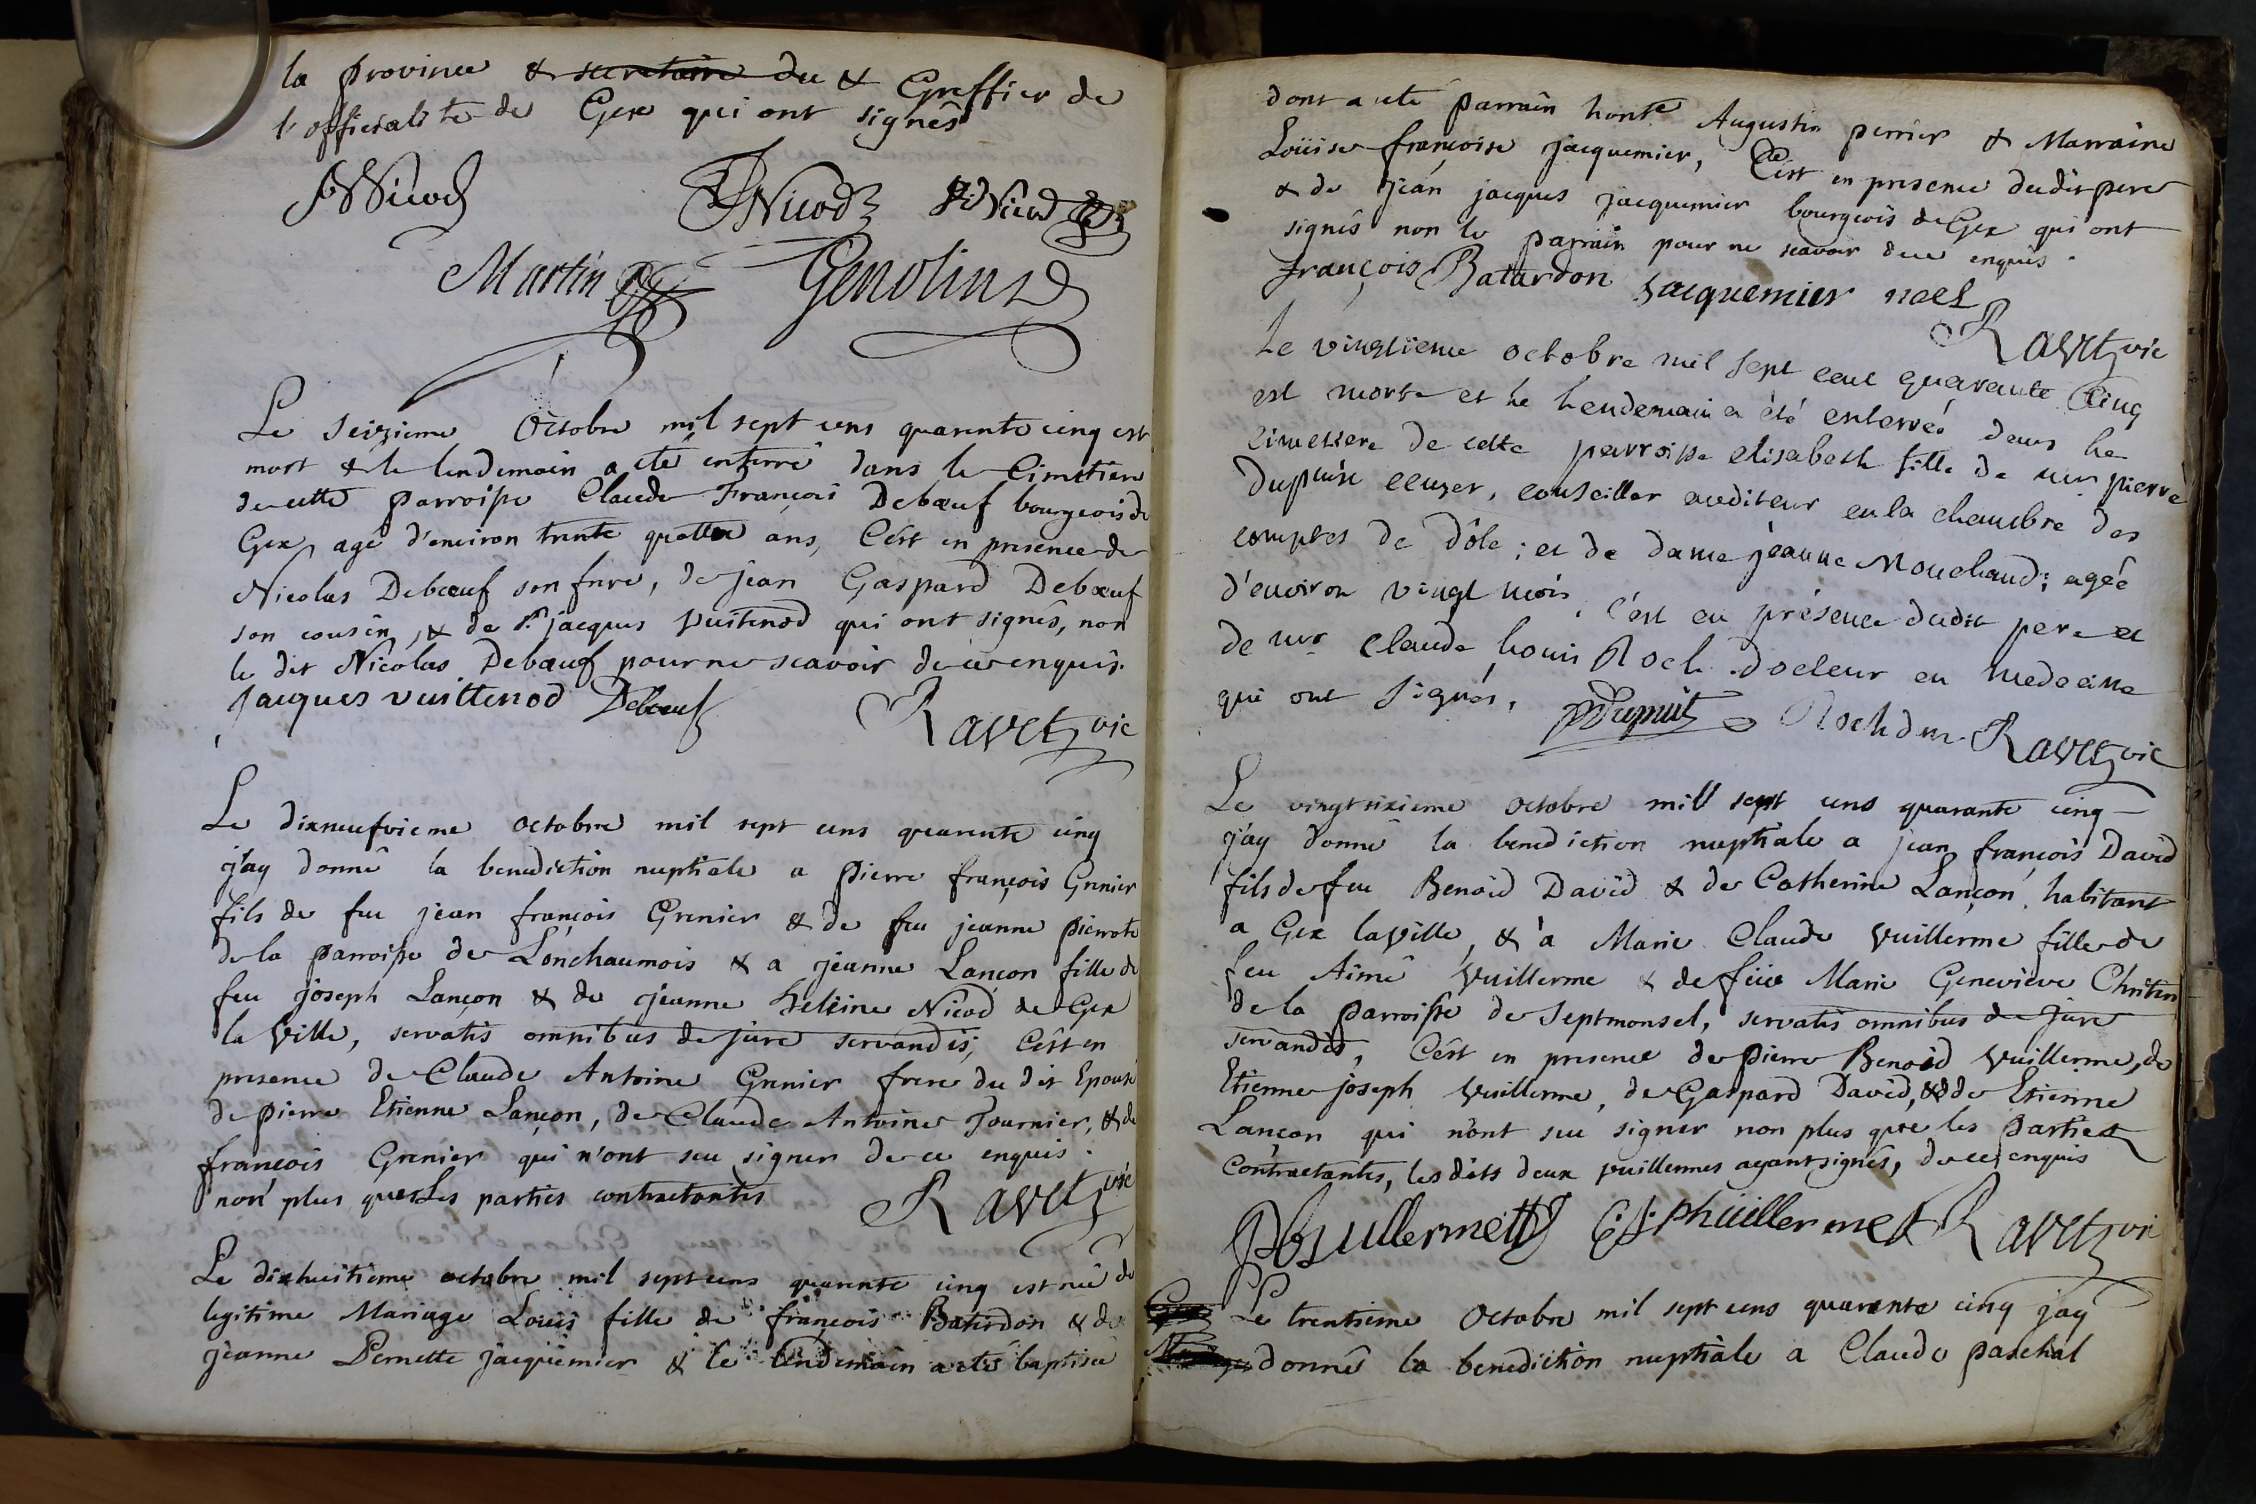 la province & secretaire du & Greffier de
l'officialité de Gex qui ont signés
Nicod
Nicod
Nicod
Martin
Genolin
Le seizieme Octobre mil sept cens quarente cinq est
mort & le lendemain a eté enterré dans le Cimetiere
de cette parroisse Claude François Debœuf bourgeois de
Gex, agé d'environ trente quattre ans, C'est en presence de
Nicolas Debœuf son frere, de jean Gaspard Debœuf
son cousin, & de Sr. jacques Vuitenod qui ont signés, non
le dit Nicolas Debœuf pour ne scavoir de ce enquis.
Jacques vuittenod Debœuf
Ravet vic
Le dixneufvieme octobre mil sept cens quarente cinq
j'ay donné la benediction nuptiale a pierre françois Grenier
fils de feu jean françois Grenier & de feu jeanne pierrote
de la parroisse de Lonchaumois & a jeanne Lançon fille de
feu joseph Lançon & de jeanne heleine Nicod de Gex
la Ville, servatis omnibus de jure servandis; C'est en
presence de Claude Antoine Grenier frere du dit Epoux
de pierre Etienne Lançon, de Claude Antoine Fournier, & de
françois Grenier qui n'ont sçu signer de ce enquis.
non plus que Les parties contractantes
Ravet vic
Le dixhuitieme octobre mil sept cens quarente cinq est née de
legitime Mariage Louis fille de françois Batardon & de
jeanne Pernette jacquemier & le lendemain a eté baptisée
dont a eté parrain honte Augustin perrier & Marraine
Loüise françoise jacquemier, C'est en presence dudit pere
& de jean jacques jacquemier bourgeois de Gex qui ont
signés non le parrain pour ne scavoir de ce enquis.
François Batardon jacquemier noel
Ravet vic
Le vingtieme octobre mil sept cent quarante Cinq
est morte et le lendemain a été enterrée dans le
cimetiere de cette parroisse elisabeth fille de mr pierre
Dupuis ecuyer, conseiller auditeur en la chambre des
comptes de Dôle; et de dame jeanne Mouchaud; agée
d'environ vingt mois, c'est en présence dudit pere et
de mr Claude louis Roch Docteur en medecine
qui ont signés,
Dupuit
Roch dm
Ravet vic
Le vingtsixieme octobre mill sept cens quarante cinq
j'ay donné la benediction nuptiale a jean françois David
fils de feu Benoid David & de Catherine Lançon, habitant
a Gex la Ville, & a Marie Claude Vuillerme fille de
feu Aimé Vuillerme & de feüe Marie Genevieve Chriten
de la parroisse de Septmonsel, servatis omnibus de jure
servandis, C'est en presence de pierre Benoid Vuillerme, de
Etienne joseph Vuillerme, de Gaspard David, & de Etienne
Lançon qui n'ont sçu signer non plus que les Parties
Contractantes, les dits deux vuillermes ayant signés, de ce enquis
vullermett
phuillermet
Ravet vic
Le trentieme Octobre mil sept cens quarante cinq jay
donné la benediction nuptiale a Claude paschal